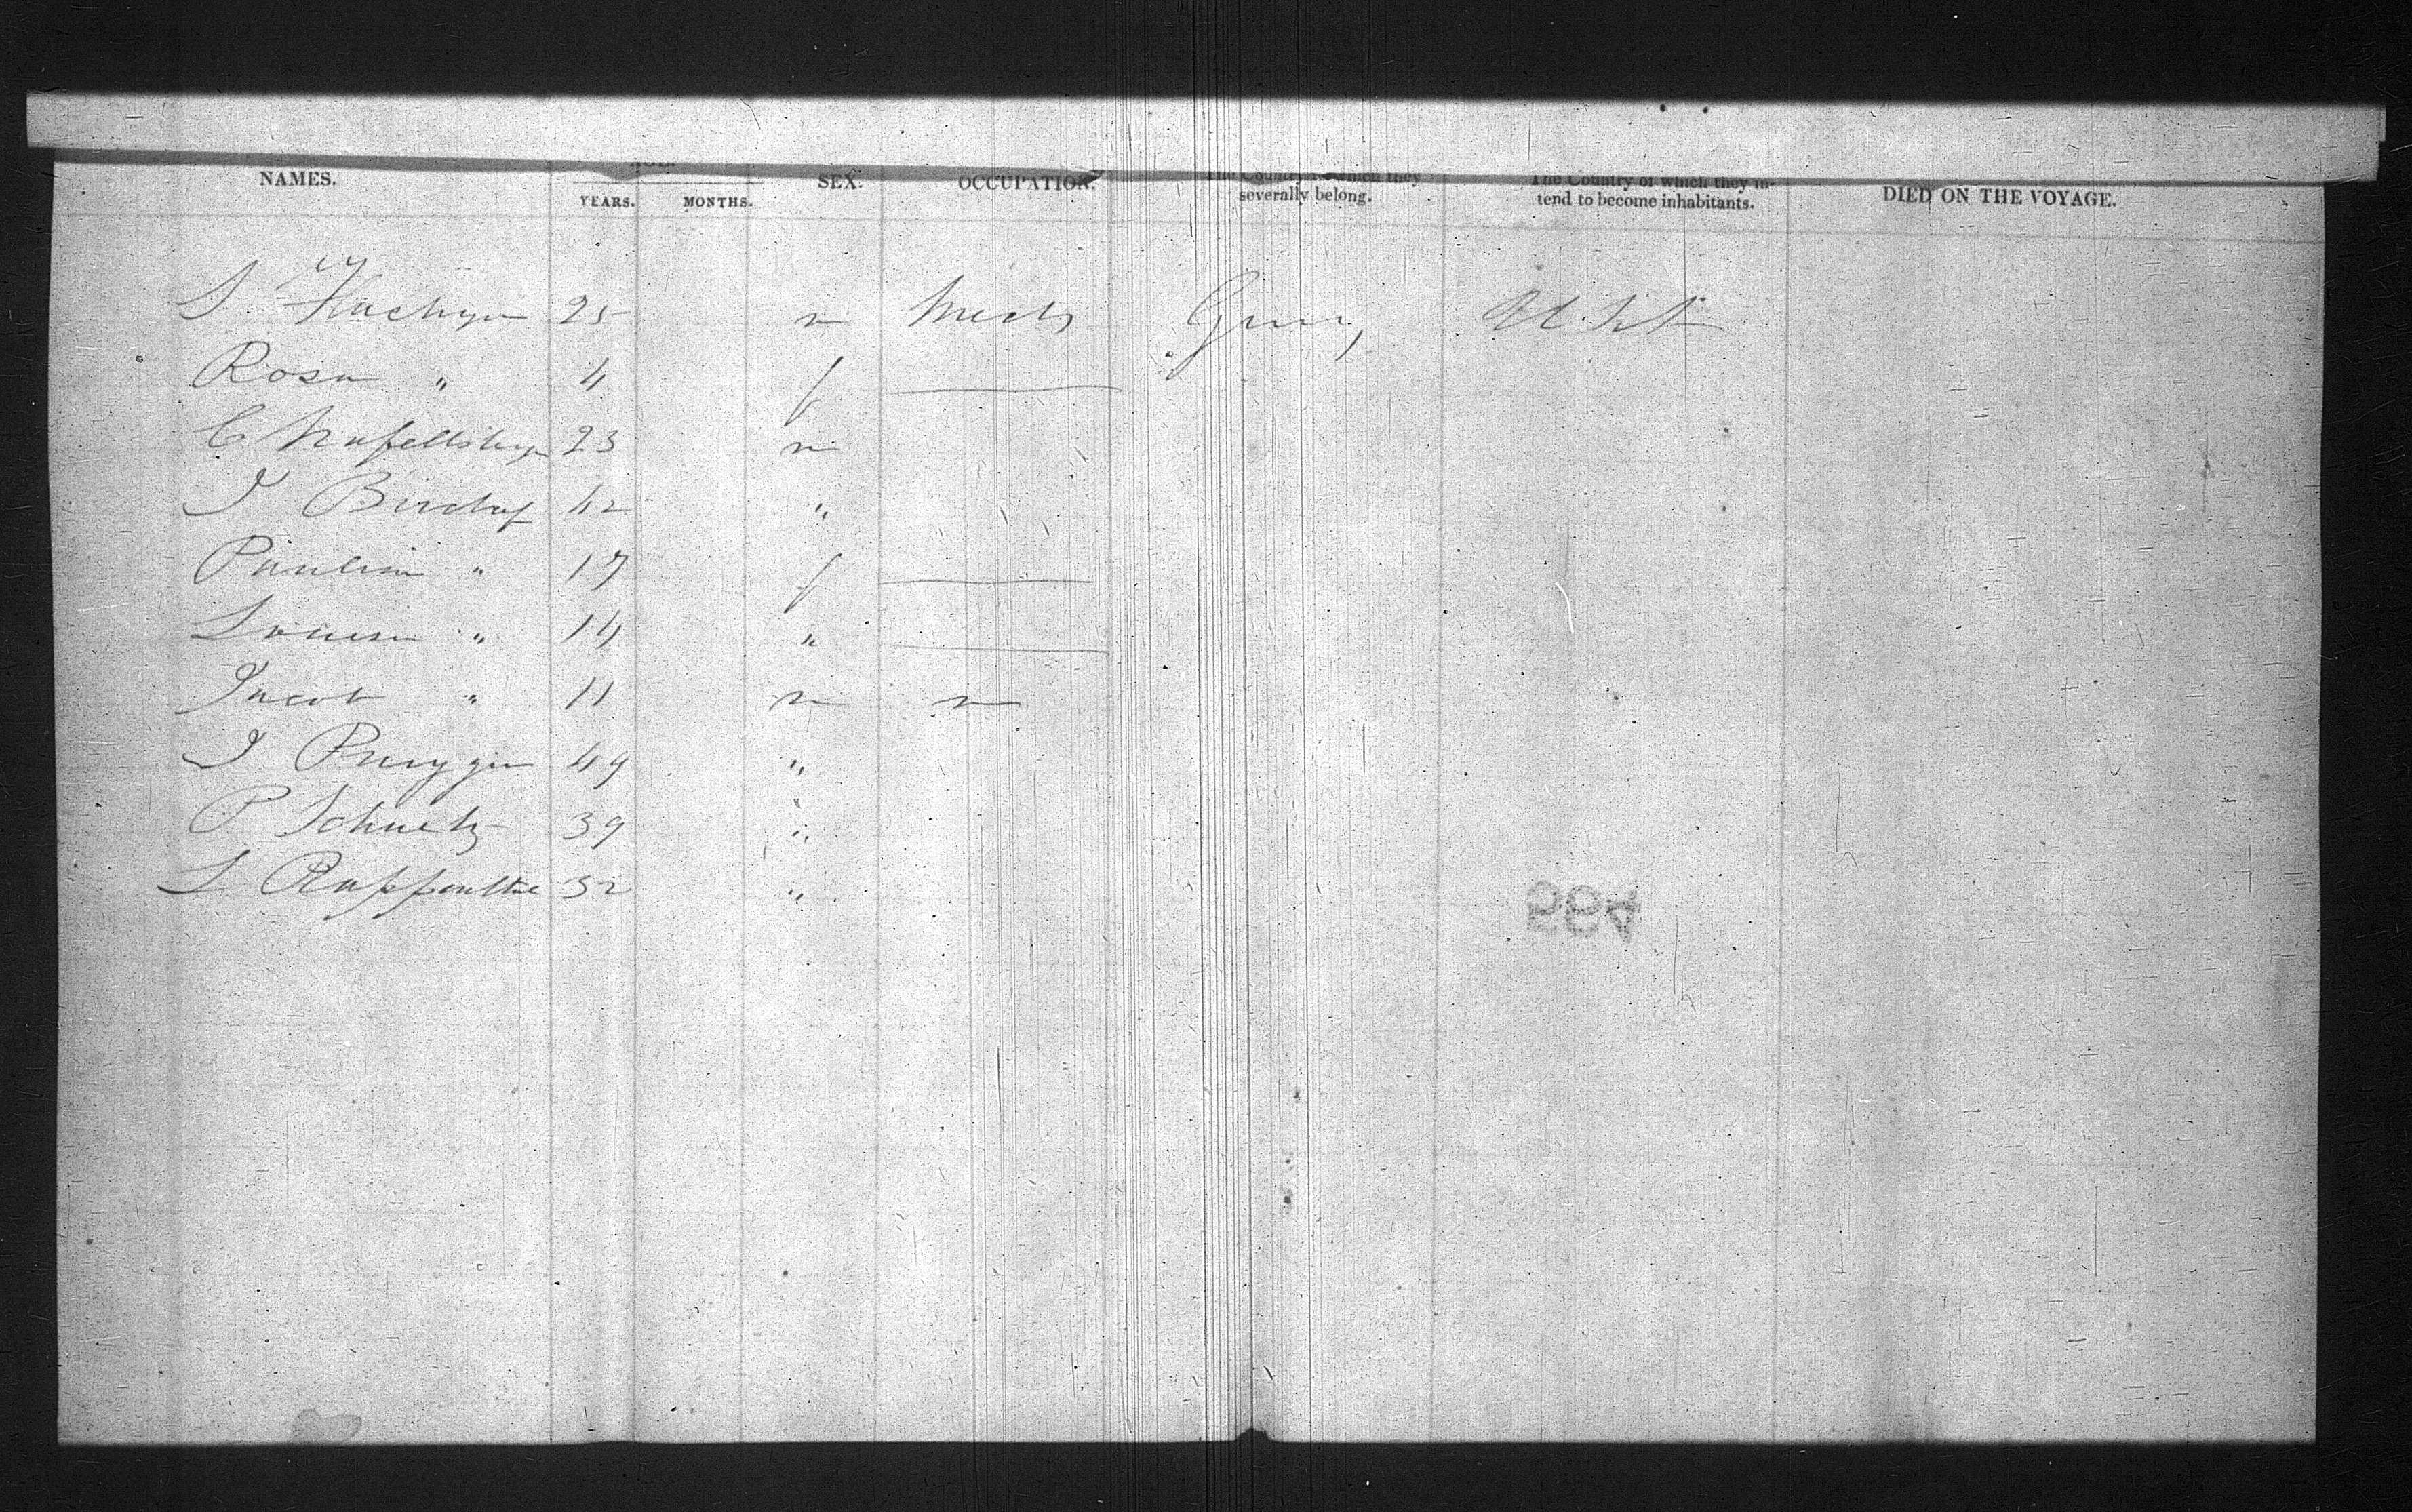 NAMES. YEARS. MONTHS. SEX. OCCUPATION. The Country to which they severally belong. The Country of which they intend to become inhabitants. DIED ON THE VOYAGE.
S 25 m Mech Germy U. St
Rosa " 4 f
C 23 m
J Bischof 42 "
Paulina " 17 f
Louisa " 14 "
Jacob " 11 m
J 49 "
P Schuetz 39 "
L 32 "